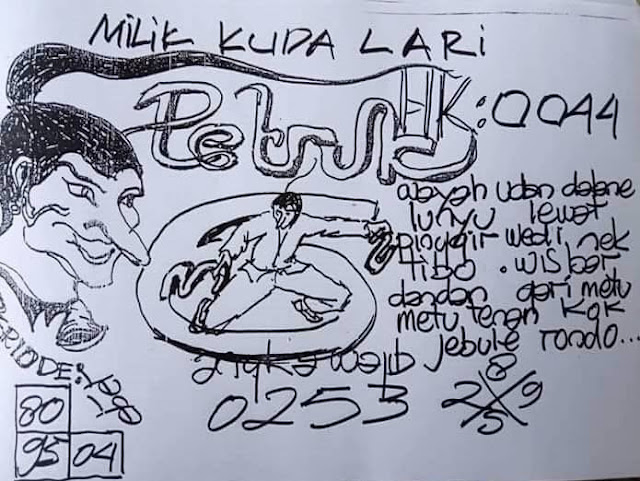 MILIK KUDA LARI
PetruK HK:0044
wayah udan dalane
lunyu lewat
pinggir wedi nek
tibo . wis bar
dandan gari metu
metu tenan kok
jebule rondo...
PERIODE:
angka wajib
0253
8
2 X 9
5
80
95 04